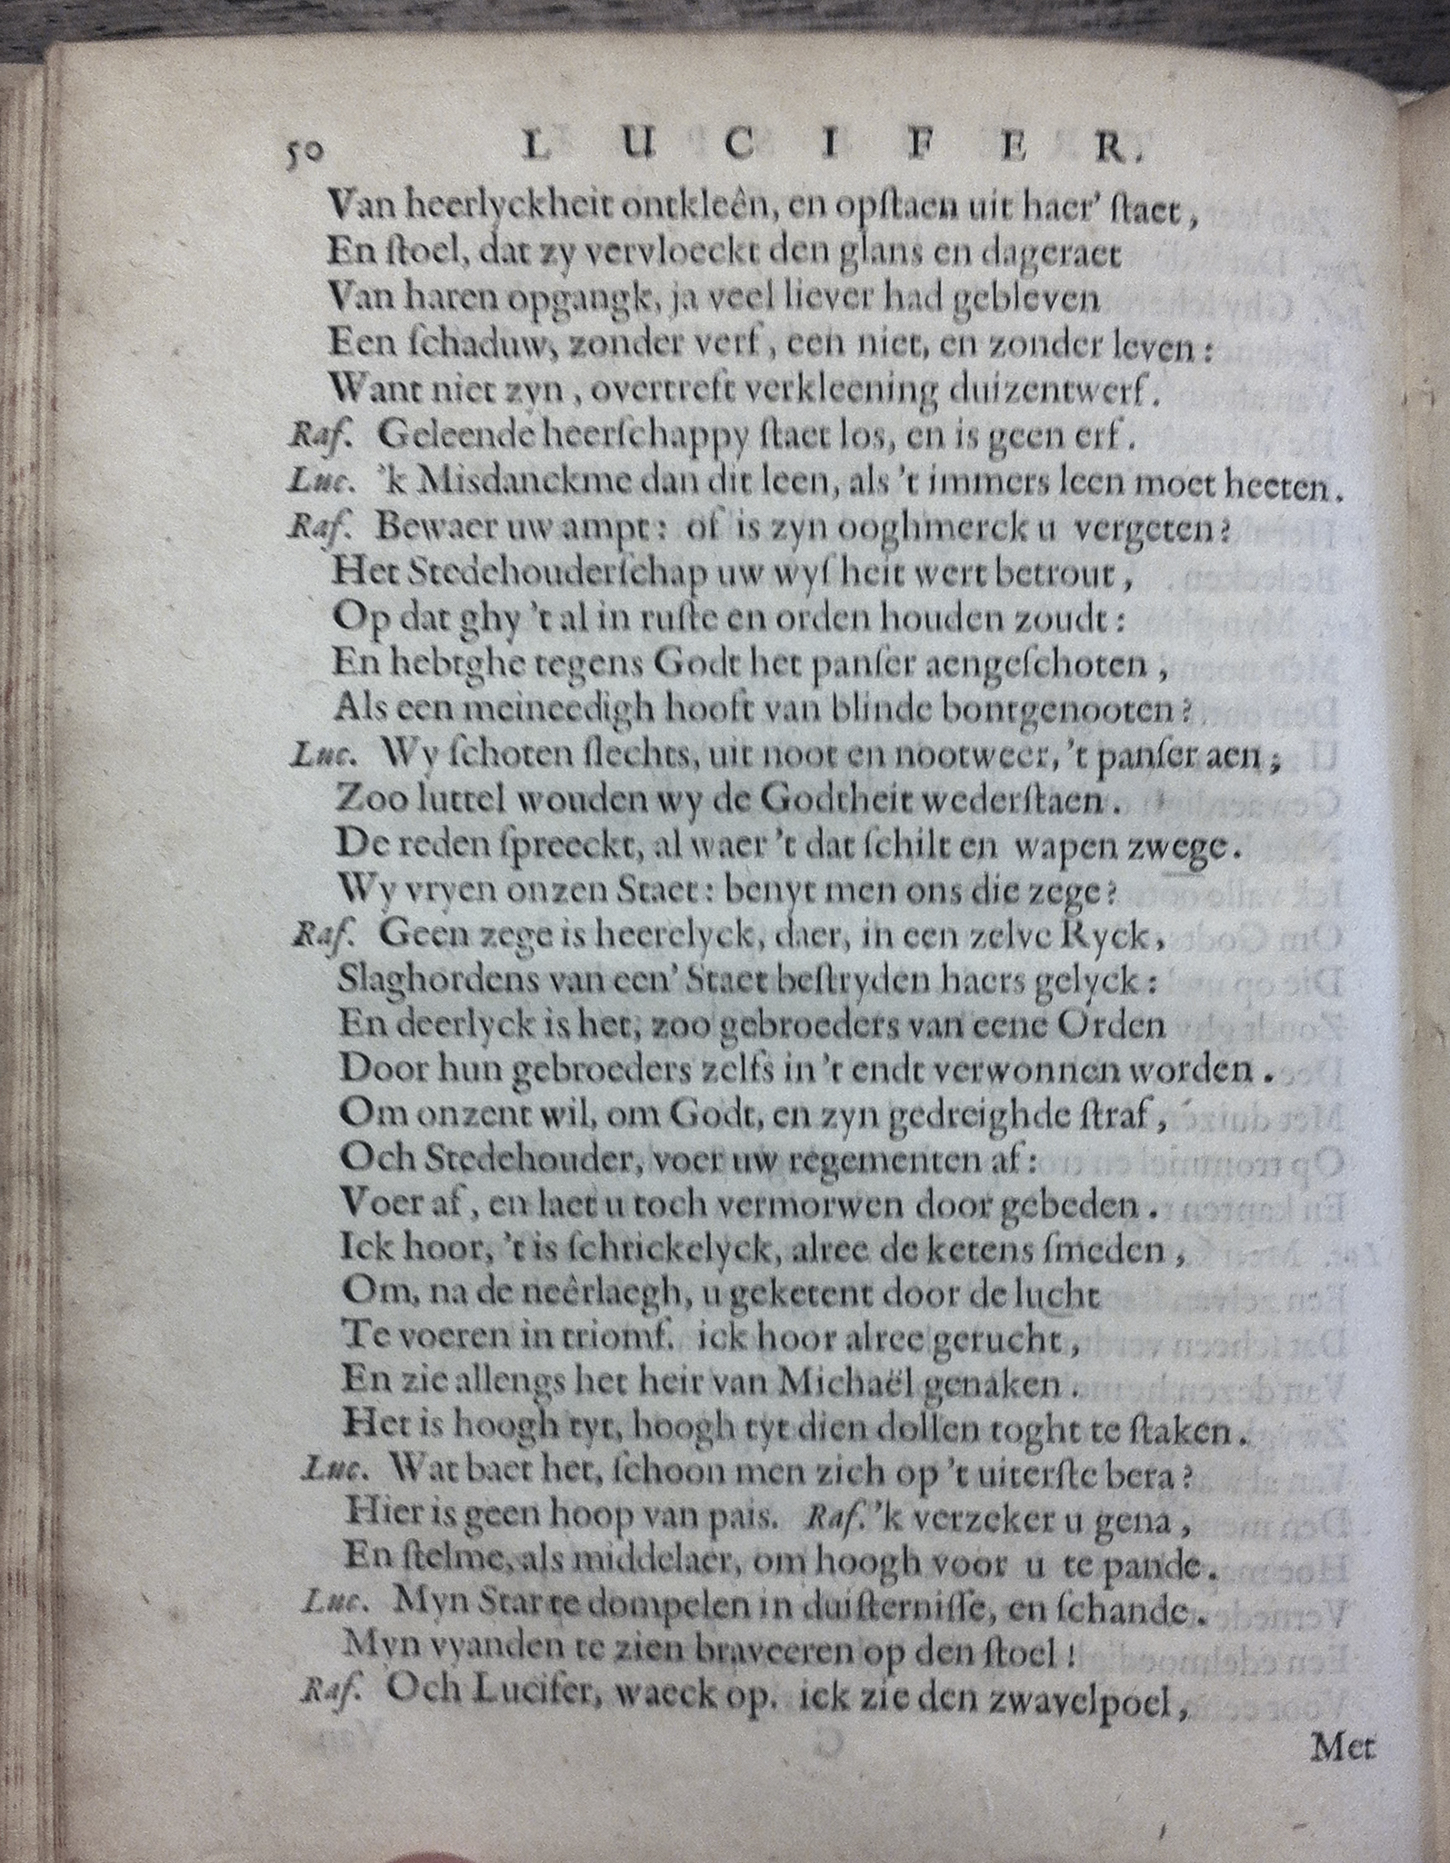 50 L U C I F E R.
Van heerlyckheit ontkleên, en opſtaen uit haer' ſtaet,
En ſtoel, dat zy vervloeckt den glans en dageraet
Van haren opgangk, ja veel liever had gebleven
Een ſchaduw, zonder verf, een niet, en zonder leven:
Want niet zyn, overtreft verkleening duizentwerf.
Raf. Geleende heerſchappy ſtaet los, en is geen erf.
Luc. 'k Misdanckme dan dit leen, als 't immers leen moet heeten.
Raf. Bewaer uw ampt: of is zyn ooghmerck u vergeten?
Het Stedehouderſchap uw wyſheit wert betrout,
Op dat ghy 't al in ruſte en orden houden zoudt:
En hebtghe tegens Godt het panſer aengeſchoten,
Als een meineedigh hooft van blinde bontgenooten?
Luc. Wy ſchoten ſlechts, uit noot en nootweer, 't panſer aen;
Zoo luttel wouden wy de Godtheit wederſtaen.
De reden ſpreeckt, al waer 't dat ſchilt en wapen zwege.
Wy vryen onzen Staet: benyt men ons die zege?
Raf. Geen zege is heerelyck, daer, in een zelve Ryck,
Slaghordens van een' Staet beſtryden haers gelyck:
En deerlyck is het, zoo gebroeders van eene Orden
Door hun gebroeders zelfs in 't endt verwonnen worden.
Om onzent wil, om Godt, en zyn gedreighde ſtraf,
Och Stedehouder, voer uw regementen af:
Voer af, en laet u toch vermorwen door gebeden.
Ick hoor, 't is ſchrickelyck, alree de ketens ſmeden,
Om, na de neêrlaegh, u geketent door de lucht
Te voeren in triomf. ick hoor alree gerucht,
En zie allengs het heir van Michaël genaken.
Het is hoogh tyt, hoogh tyt dien dollen toght te ſtaken.
Luc. Wat baet het, ſchoon men zich op 't uiterſte bera?
Hier is geen hoop van pais. Raf. 'k verzeker u gena,
En ſtelme, als middelaer, om hoogh voor u te pande.
Luc. Myn Star te dompelen in duiſterniſſe, en ſchande.
Myn vyanden te zien braveeren op den ſtoel!
Raf. Och Lucifer, waeck op. ick zie den zwavelpoel,
Met